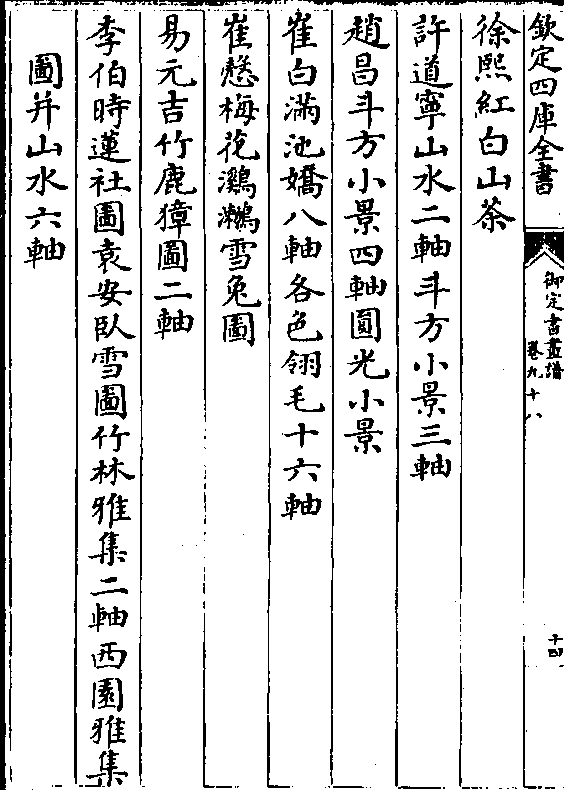 欽定四庫全書
御定書畫譜
卷九十八
十四
徐熙紅白山茶
許道寧山水二軸斗方小景三軸
趙昌斗方小景四軸圓光小景
崔白滿池嬌八軸各色翎毛十六軸
崔慤梅花鸂鶒雪兔圖
易元吉竹鹿獐圖二軸
李伯時蓮社圖袁安臥雪圖竹林雅集二軸西園雅集
圖并山水六軸